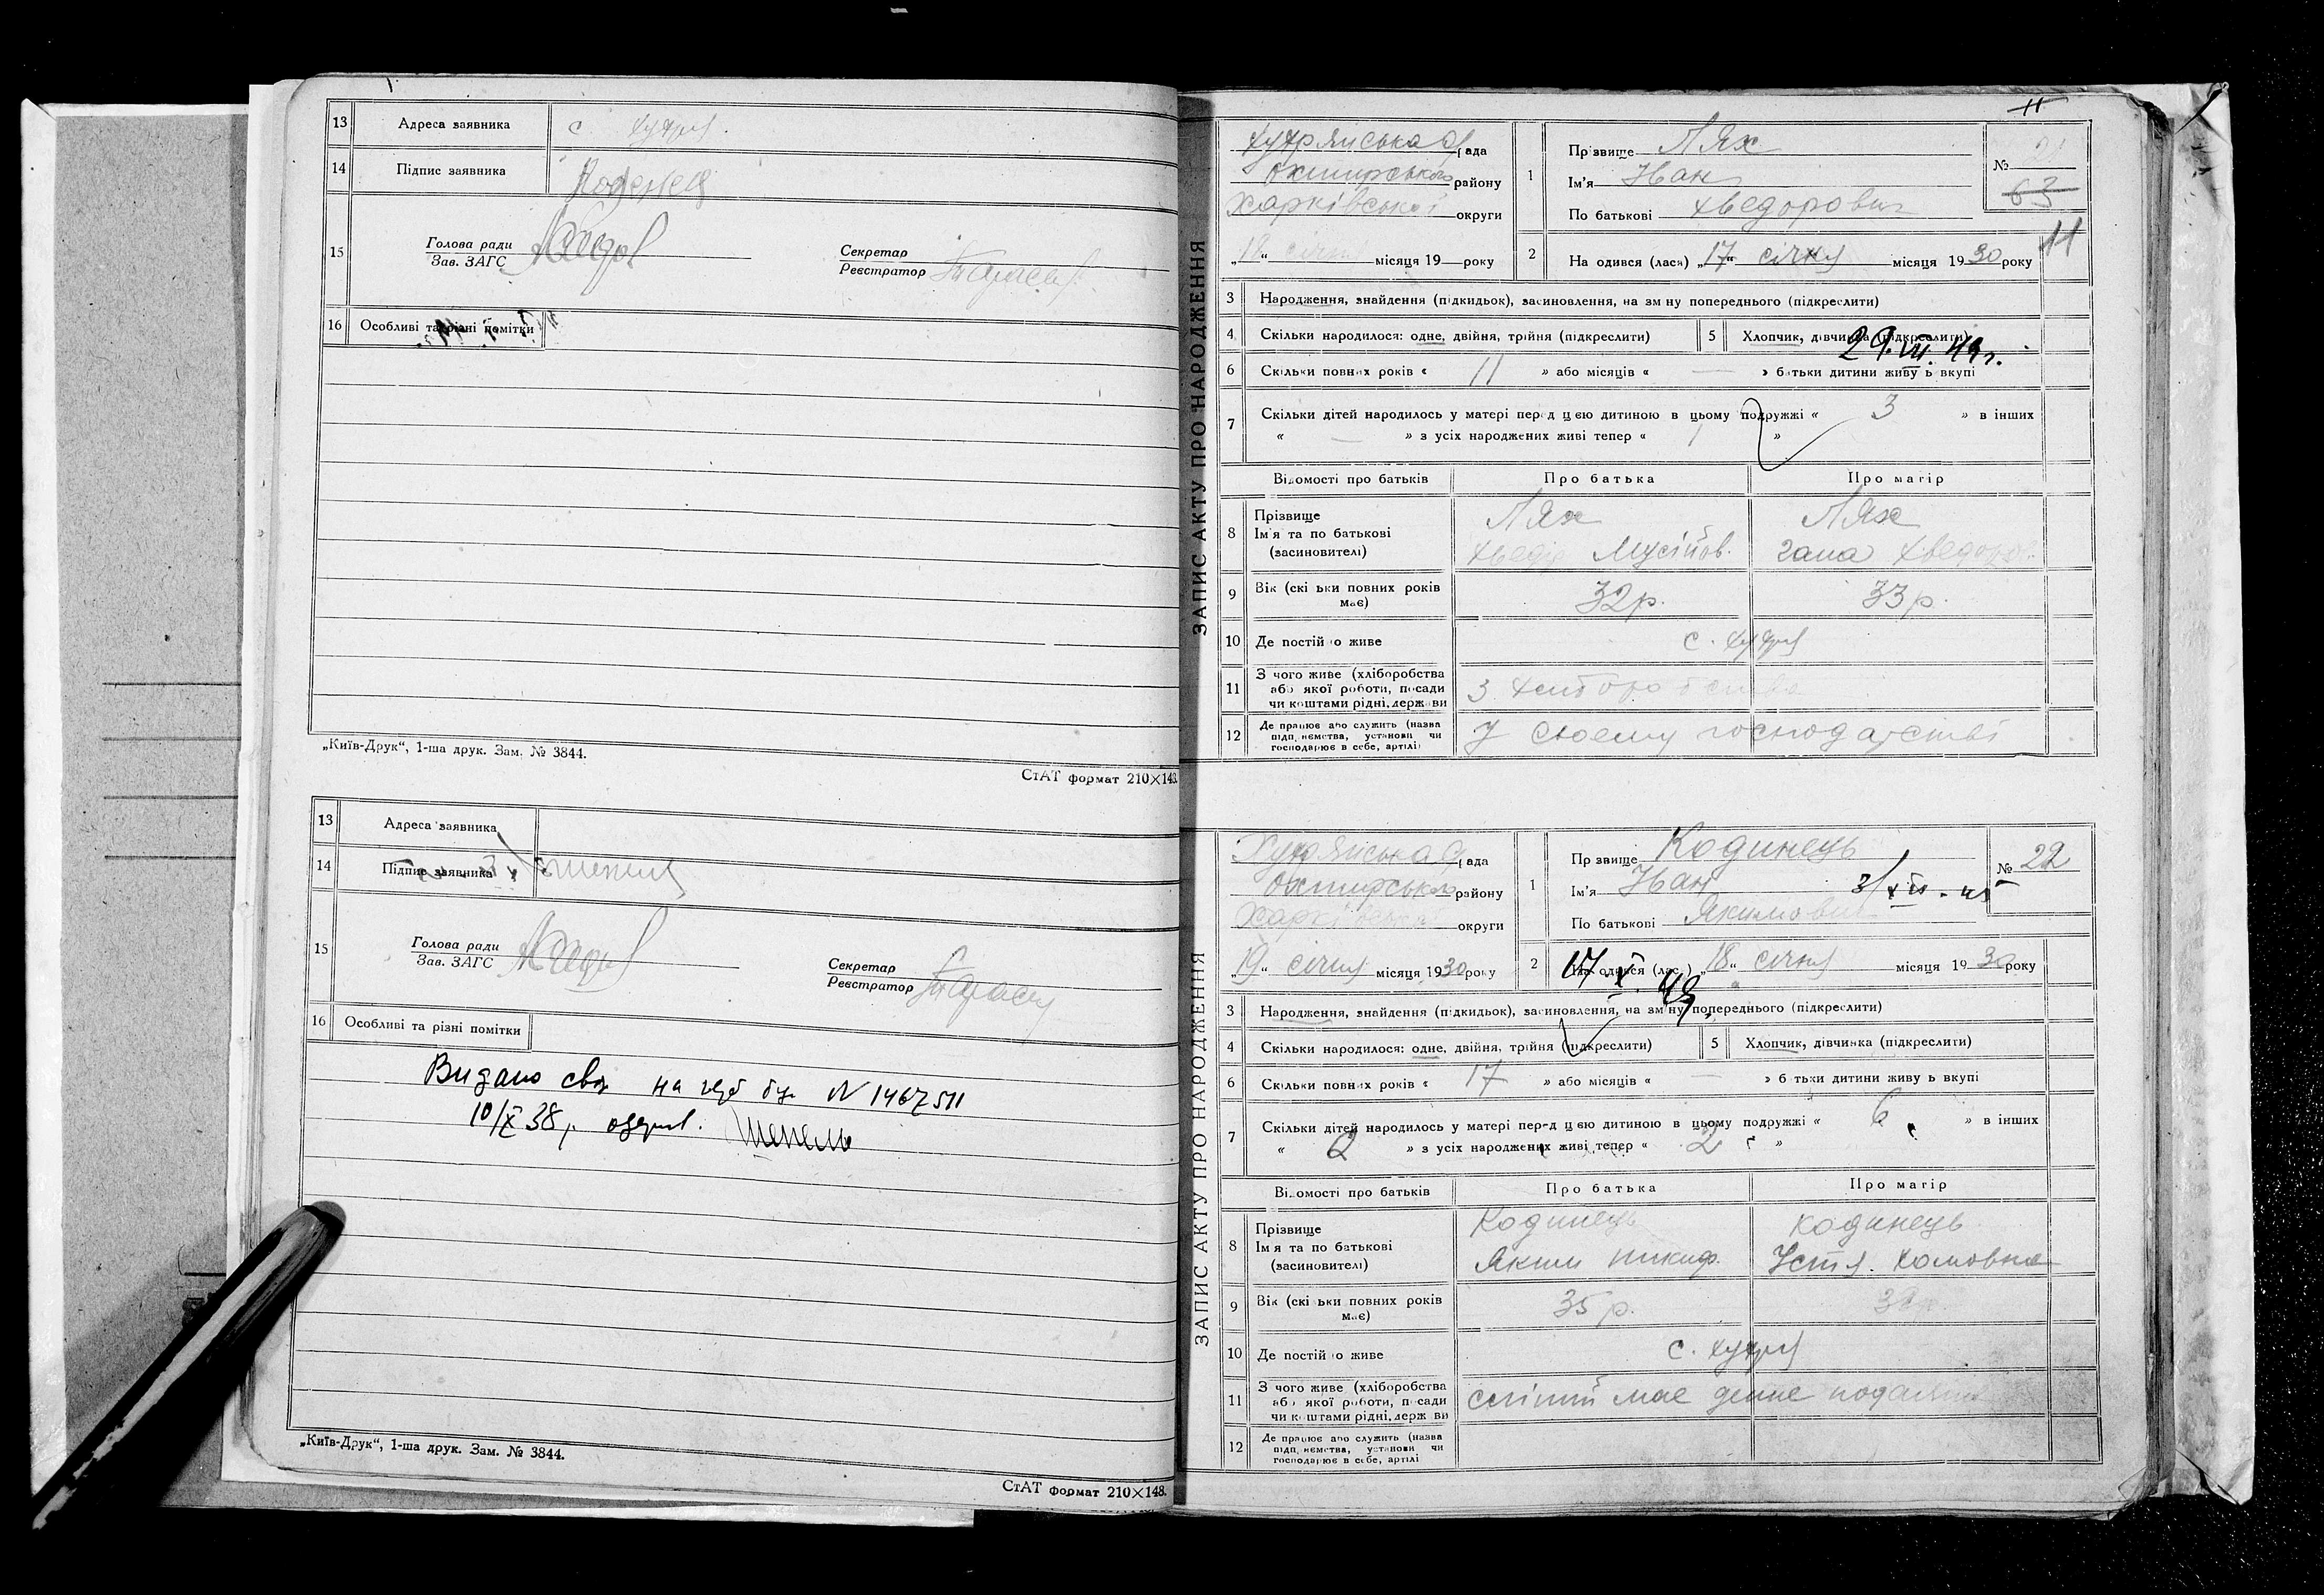 13 Адреса заявника с. Хухря.
14 Підпис заявника
15 Голова ради
Зав. ЗАГС
Секретар
Реєстратор
16 Особливі та різні помітки
„Київ-Друк“, 1-ша друк. Зам. № 3844.
СтАТ формат 210×148.
13 Адреса заявника
14 Підпис заявника
15 Голова ради
Зав. ЗАГС
Секретар
Реєстратор
16 Особливі та різні помітки
Видано на № 1467511
10/X 38 р.
„Київ-Друк“, 1-ша друк. Зам. № 3844.
СтАТ формат 210×148.
11
ЗАПИС АКТУ ПРО НАРОДЖЕННЯ
Хухрянська рада
Охтирського району
Харківської округи
„18“ січня місяця 19 року
1 Прізвище Лях
Ім'я Іван
По батькові Хведорович
№ 21
63
11
2 Народився (лася) „17“ січня місяця 1930 року
3 Народження, знайдення (підкидьок), засиновлення, на зміну попереднього (підкреслити)
4 Скільки народилося: одне, двійня, трійня (підкреслити)
5 Хлопчик, дівчинка (підкреслити)
29.VII.49г.
6 Скільки повних років « 11 » або місяців « — » батьки дитини живуть вкупі
7 Скільки дітей народилось у матері перед цією дитиною в цьому подружжі « 3 » в інших
« — » з усіх народжених живі тепер « 1 »
Відомості про батьків Про батька Про матір
8 Прізвище Лях Лях
Ім'я та по батькові Хведір Мусійов. Гана Хведоров.
(засиновителі)
9 Вік (скільки повних років має) 32 р. 33 р.
10 Де постійно живе с. Хухря
11 З чого живе (хліборобства або якої роботи, посади чи коштами рідні, держави З хліборобства
12 Де працює або служить (назва підприємства, установи чи господарює в себе, артілі) У своєму господарстві
ЗАПИС АКТУ ПРО НАРОДЖЕННЯ
Хухрянська рада
Охтирського району
Харківської округи
„19“ січня місяця 1930 року
1 Прізвище Кодинець
Ім'я Іван
По батькові Якимович
№ 22
2 Народився (лася) „18“ січня місяця 1930 року
3 Народження, знайдення (підкидьок), засиновлення, на зміну попереднього (підкреслити)
4 Скільки народилося: одне, двійня, трійня (підкреслити)
5 Хлопчик, дівчинка (підкреслити)
6 Скільки повних років « 17 » або місяців « — » батьки дитини живуть вкупі
7 Скільки дітей народилось у матері перед цією дитиною в цьому подружжі « 6 » в інших
« » з усіх народжених живі тепер « 2 »
Відомості про батьків Про батька Про матір
8 Прізвище Кодинець Кодинець
Ім'я та по батькові Яким Никиф. Устя. Хомовна
(засиновителі)
9 Вік (скільки повних років має) 35 р.
10 Де постійно живе с. Хухря
11 З чого живе (хліборобства або якої роботи, посади чи коштами рідні, держави
12 Де працює або служить (назва підприємства, установи чи господарює в себе, артілі